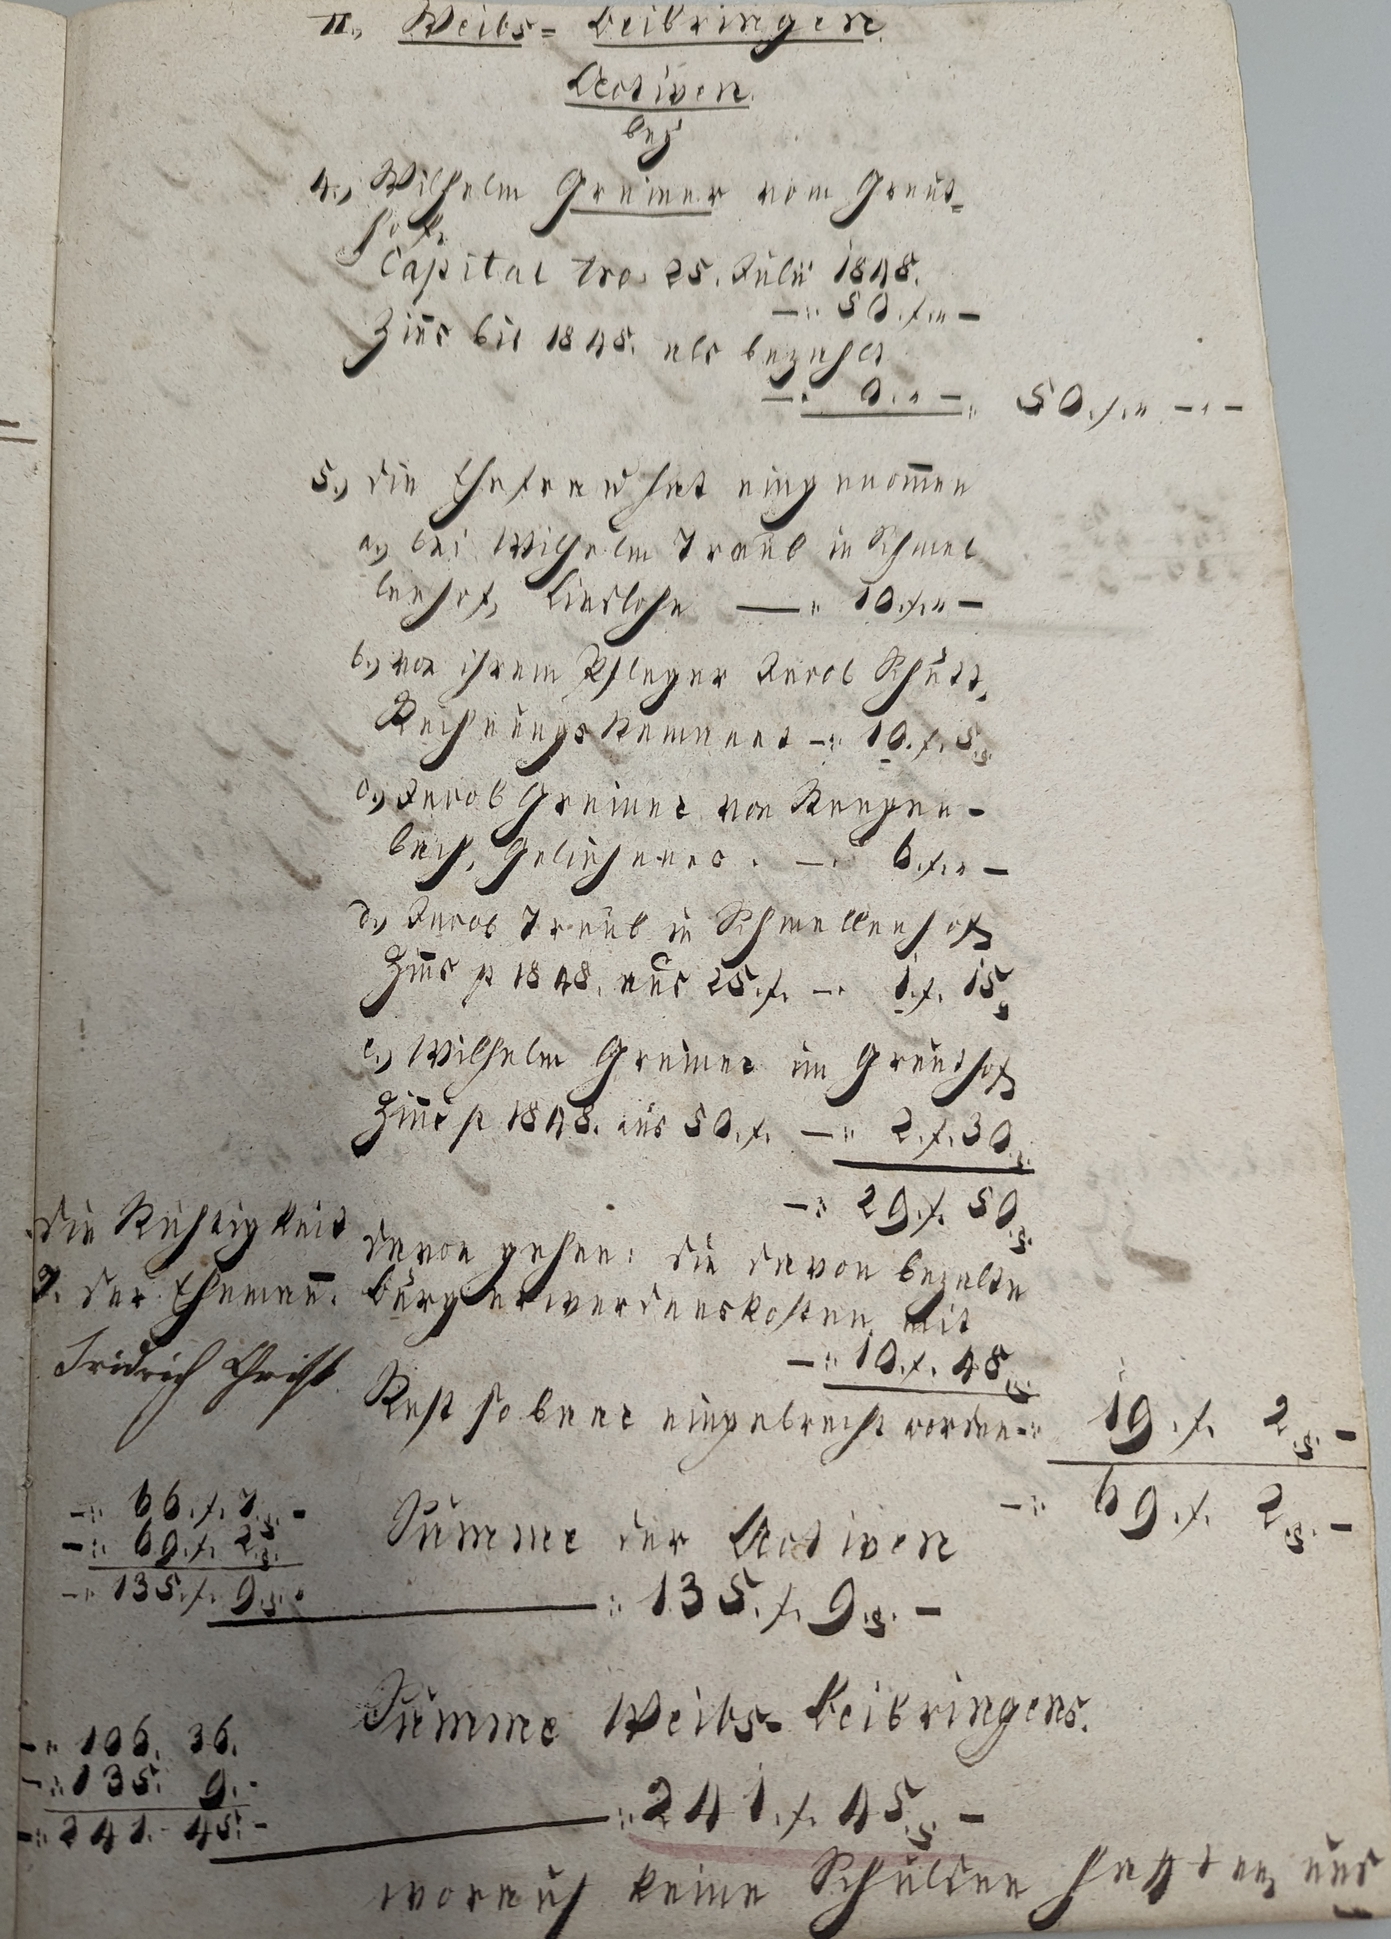 II., Weibs= Beibringen.
Activen.
bey
4., Wilhelm Greiner vom Greut=
hof,
Capital tro. 25. Juli 1848.
—:: 50.f.„ —
Zins bis 1848. als bezahlt
—: 0.„ —„ 50.f.„ —„—
5., die Ehefrau hat eingenommen
a., bei Wilhelm Traub in Schmel
lenhof, Lieslohn — „ 10.f.„ —
b., von ihrem Pfleger Jacob Schütt,
Rechnungs Remanet —:: 10.f. 5.
c., Jacob Greiner von
bach, Geliehenes. —: 6.f.„ —
d., Jacob Traub in Schmellenhof
Zins p 1848. aus 25.f. —: 1.f. 15.
e., Wilhelm Greiner im Greuthof
Zins p 1848. aus 50.f. —:: 2.f. 30.
—: 29.f. 50.
Die Richtigkeit
davon gehen: die davon bezalte
T. der Ehemann.
Bürgerwerdenskosten mit
Fridrich Christ.
—:: 10.f. 48.
Rest so baar eingebracht worden —:: 19.f. 2. —
—: 69.f. 2. —
—: 66.f. 7. —
—: 69.f. 2.
—: 135.f. 9.
Summe der Activen
—: 135.f. 9. —
Summe Weibs= Beibringens.
—: 106. 36.
—: 135. 9. -
—: 241. 45. —
—:: 241.f. 45. —
worauf keine Schulden haften, und